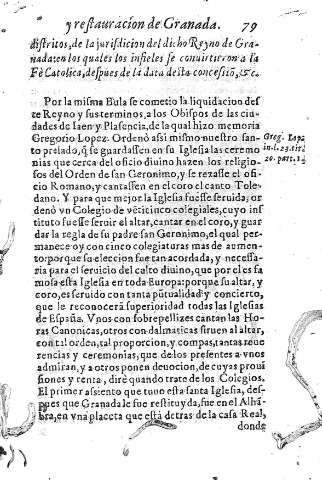 y restauracion de Granada. 79
distritos, de la jurisdicion del dicho Reyno de Gra-
nada: en los quales los infieles se conuirtieron a la
Fè Catolica, despues de la data desta concesiõ, &c.
Por la misma Bula se cometio la liquidacion des
te Reyno y sus terminos, a los Obispos de las ciu
dades de Iaen y Plasencia, de la qual hizo memoria
Gregorio Lopez. Ordenò asi mismo nuestro san-
to prelado, q̃ se guardassen en su Iglesia las ceremo
nias que cerca del oficio diuino hazen los religio-
sos del Orden de san Geronimo, y se rezasse el ofi-
cio Romano, y cantassen en el coro el canto Tole-
dano. Y para que mejor la Iglesia fuesse seruida, or
denò vn Colegio de veĩticinco colegiales, cuyo ins
tituto fuesse seruir el altar, cantar en el coro, y guar
dar la regla de su padre san Geronimo, el qual per-
manece oy con cinco colegiaturas mas de aumen-
to: porque su eleccion fue tan acordada, y necessa-
ria para el seruicio del culto diuino, que por el es fa
mosa esta Iglesia en toda Europa: porque su altar, y
coro, es seruido con tanta pũtualidad y concierto,
que le reconocerà superioridad todas las Iglesias
de España. Vnos con sobrepellizes cantan las Ho-
ras Canonicas, otros con dalmaticas siruen al altar,
con tal orden, tal proporcion, y compas, tantas reue
rencias y ceremonias, que de los presentes a vnos
admiran, y a otros ponen deuocion, de cuyas proui
siones y renta, dirè quando trate de los Colegios.
El primer assiento que tuuo esta santa Iglesia, des-
pues que Granada le fue restituyda, fue en el Alhã
bra, en vna placeta que està detras de la casa Real,
donde
Greg. Lopz
in l. 23. tit.
20. part. 1.